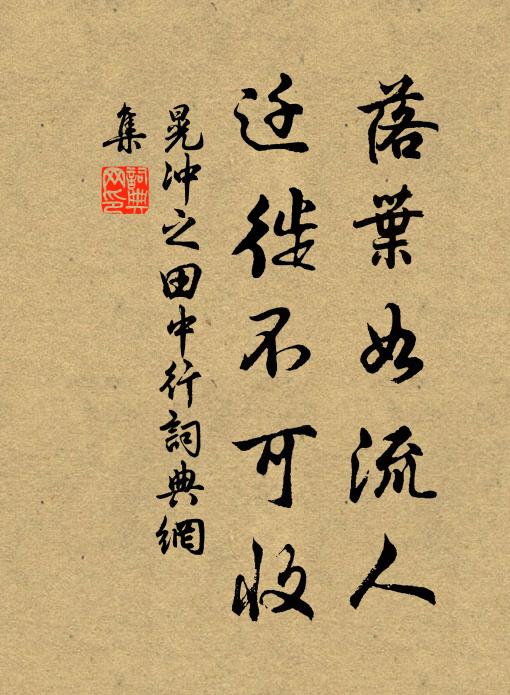 落葉如流人
迁徙不可收
晁冲之田中行詞典網
集
詞典網印